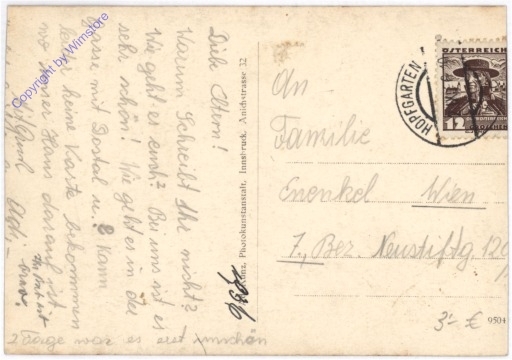 Copyright by Wimstore
Lieb. Eltern!
Warum Schreibt Ihr nicht?
Wie geht es euch? Bei uns ist es
sehr schön! Wie geht es in der
Gasse mit Dostal u. ? Kann
leider keine Karte bekommen
wo unser Haus darauf ist
Mit Gruß
2 Tage war es erst unschön
Kunz, Photokunstanstalt, Innsbruck, Anichstrasse 32
HOPFGARTEN
ÖSTERREICH
12
An
Familie
Enenkel Wien
7., Bez. Neustiftg. 129
3'- €
9504